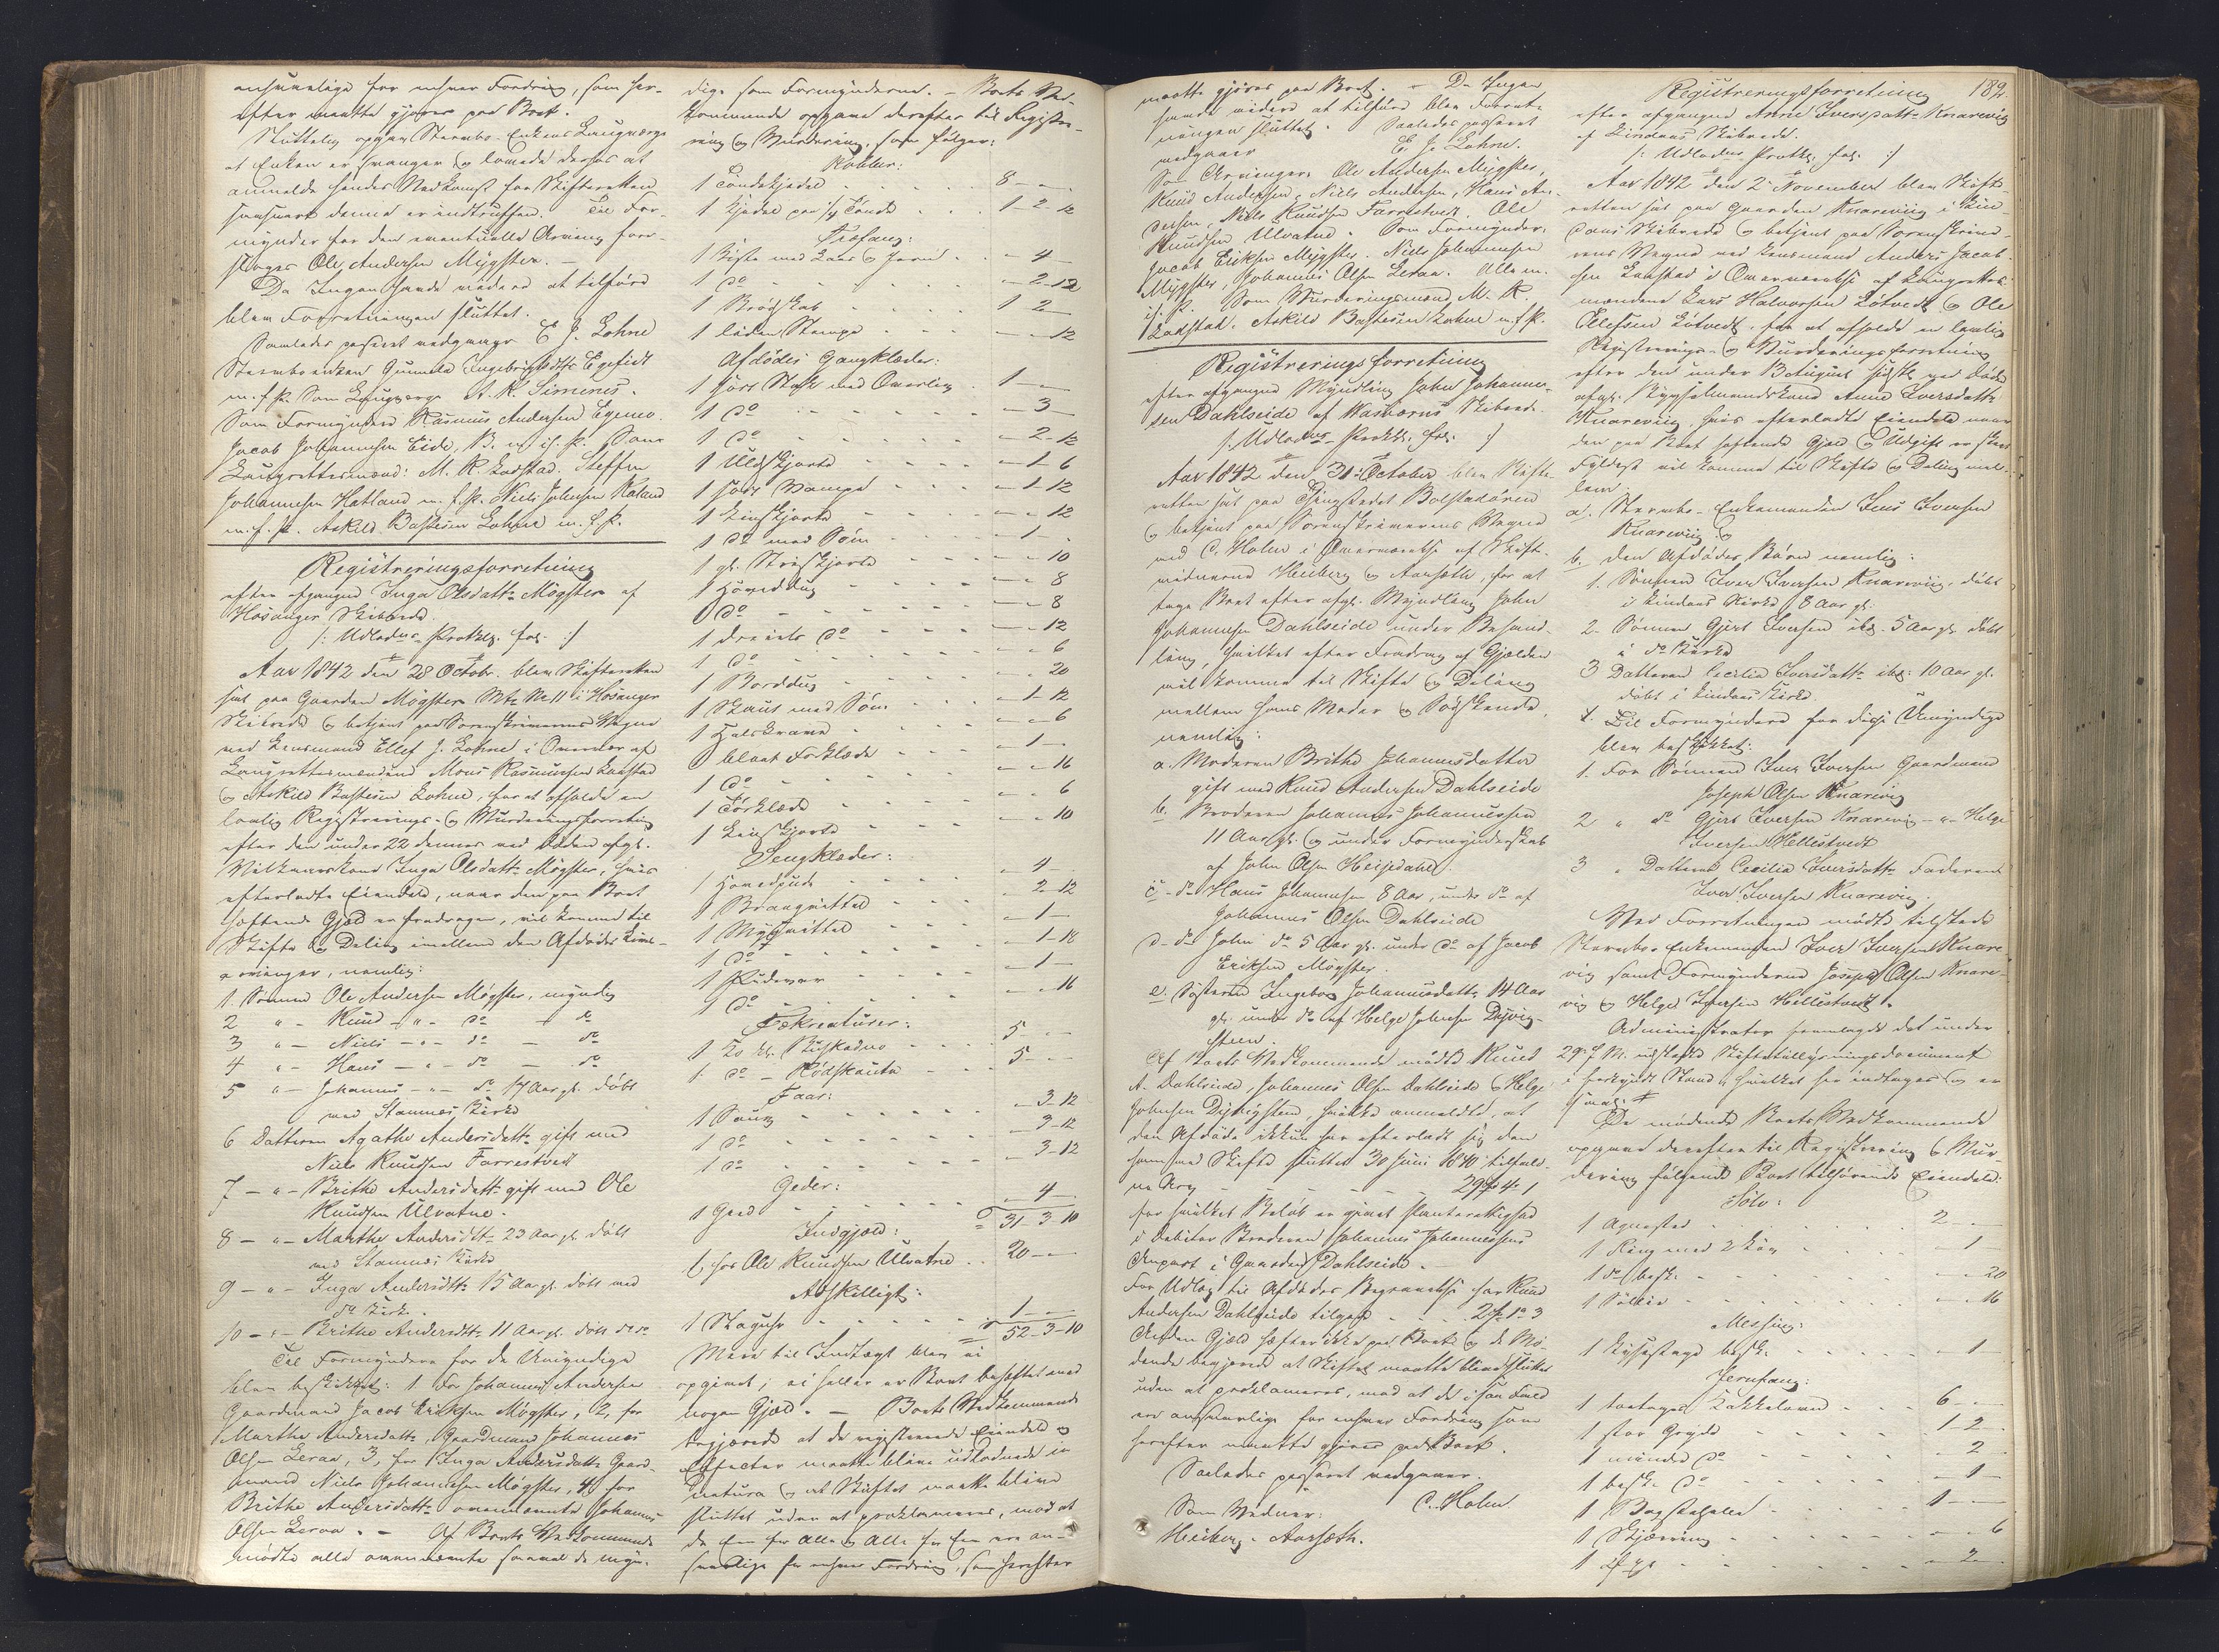 ansvarlige for enhver Fordring, som her-
efter maatte gjøres paa Boet.
Sluttelig opgav Stervbo-Enkens Laugværge
at Enken er svanger og lovede derfor at
anmelde hendes Nedkomst for Skifteretten
saasnart denne er indtruffen. Til For-
mynder for den eventuelle Arving fore-
sloges Ole Andersen Mygster. -
Da Ingen havde videre at tilføre
blev Forretningen sluttet.
Saaledes passeret vedgaaer E. J. Lohne
Stervboenken Gunnela Ingebrigtsdtr Egesidt
m. f. P. Som Laugværge A. K. Simenes.
Som Formyndere Rasmus Andersen Egemo.
Jacob Johannessen Eide, B. m. if. P. Som
Laugrettesmænd: M. R. Laastad. Steffen
Johannessen Hatland m. f. P. Niels Johnsen Roland
m. f. P. Askild Bastesen Lohne m. f. P.
Registreringsforretning
efter afgangne Inga Olsdattr Mögster af
Hosanger Skibrede
/: Udlodns Protkl. fol. :/
Aar 1842 den 28 Octobr. blev Skifteretten
sat paa Gaarden Mögster Mtr No 11 i Hosanger
Skibrede og betjent paa Sorenskriverens Vegne
ved Lensmand Ellef J. Lohne i Overvær af
Laugrettesmændene Mons Rasmussen Laastad
og Askild Bastesen Lohne, for at afholde en
lovlig Registrerings- og Vurderingsforretning
efter den under 22 dennes ved Døden afgl.
Inga Olsdattr Mögster, hvis
efterladte Eiendele, naar den paa Boet
heftende Gjæld er fradragen, vil komme til
Skifte og Deling imellem den Afdødes Livs-
arvinger, nemlig:
1. Sønnen Ole Andersen Mögster, myndig
2 " - Knud - " - do - do
3 " - Niels - " - do - do
4 " - Hans - " - do - do
5 " - Johannes - " - do 17 Aar gl. døbt
ved Stamnes Kirke
6 Datteren Agathe Andersdattr gift med
Niels Knudsen Farrestvedt
7 - " - Brithe Andersdattr gift med Ole
Knudsen Ulvatne.
8 - " - Marthe Andersdttr 23 Aar gl. døbt
ved Stamnes Kirke
9 - " - Inga Andersdttr 15 Aar gl. døbt ved
do Kirke.
10 - " - Brithe Andersdttr 11 Aar gl. døbt do do
Til Formyndere for de Umyndige
blev beskikket: 1 For Johannes Andersen
Gaardmand Jacob Eriksen Mögster, 2, for
Marthe Andersdattr, Gaardmand Johannes
Olsen Leraa, 3, for Inga Andersdattr Gaard-
mand Niels Johannesen Mögster, 4, for
Brithe Andersdattr ovennævnte Johannes
Olsen Leraa. - Af Boets Vedkommende
mødte alle ovennævnte saavel de myn-
dige som Formynderne. - Boets Ved-
kommende opgave derefter til Registre-
ring og Vurdering, som følger:
Kobber:
1 Tøndekjedel 8 - -
1 Kjedel paa 1/4 Tønde 1-2-12
Træfang:
1 Kiste med Laas og Jern - 4 -
1 do - 2-12
1 Brødskab 1 2 -
1 liden Stampe - - 12
Afdødes Gangklæder:
1 sort Stak med Overliv 1 - -
1 do - 3 -
1 do - 2-12
1 Uldskjorte - 1 - 6
1 sort Vampe - 1-12
1 Linskjorte - - 12
1 do med Søm - 1 -
1 gl. Strieskjorte - - 10
1 Hoveddug - - 8
1 do - - 8
1 dreiels do - - 12
1 do - - 6
1 Borddug - - 20
1 Skaut med Søm - 1-12
1 Halskrave - - 6
1 blaat Forklæde - 1 -
1 do - - 16
1 Tørklæde - - 6
1 Linskjorte - - 10
Sengklæder:
1 Hovedpude - 4 -
1 Brangvittel - 2-12
1 Myggvittel - 1 -
1 do - 1-18
1 Pudevar - 1 -
1 do - - 16
Fækreaturer:
1 Ko kl. Skjskadno 5 - -
1 do - Rødskaute 5 - -
Faar:
1 Sau - 3-12
1 do - 3-12
1 do - 3-12
Geder:
1 Geed - 4
= 31-3-10
Indgjæld:
1, hos Ole Knudsen Ulvatne 20 - -
Adskilligt:
1 Staguhr 1 - -
= 52-3-10
Mere til Indtægt blev ei
opgivet; ei heller er Boet beheftet med
nogen Gjæld. - Boets Vedkommende
begjærede at de registrerede Eiendele og
Effecter maatte blive udlodnede in
natura og at Skiftet maatte blive
sluttet uden at proklameres, mod at
de Een for Alle og Alle for Een ere an-
svarlige for enhver Fordring, som herefter
maatte gjøres paa Boet. - Da Ingen
havde videre at tilføre blev Forret-
ningen sluttet. Saaledes passeret
vedgaaer E. J. Lohne.
Som Arvinger: Ole Andersen Mygster,
Knud Andersen, Niels Andersen, Hans An-
dersen, Niels Knudsen Farrestvet. Ole
Knudsen Ulvatne. Som Formyndere:
Jacob Eriksen Mygster. Niels Johannesen
Mygster, Johannes Olsen Leraa. Alle m.
if. P. Som Vurderingsmænd M. R.
Laastad. Askild Bastesen Lohne m. f. P.
Registreringsforretning
efter afgangne Myndling John Johannes-
sen Dahlseide af Waswærns Skibrede.
/: Udlodns Protkl. fol. :/
Aar 1842 den 31te October blev Skifte-
retten sat paa Thingstedet Bolstadøren
og betjent paa Sorenskriverens Vegne
ved C. Holm i Overværelse af Skift-
vidnerne Heiberg og Aarsæth, for at
tage Boet efter afgl. Myndling John
Johannesen Dahlseide under Behand-
ling, hvilket efter Fradrag af Gjælden
vil komme til Skifte og Deling
mellem hans Moder og Sødskende,
nemlig:
a. Moderen Brithe Johannesdatter
gift med Knud Andersen Dahlseide
b. Broderen Johannes Johannessen
11 Aar gl. og under Formynderskab
af John Olsen Heisjedahl.
c - do Hans Johannesen 8 Aar, under do af
Johannes Olsen Dahlseide
d - do John do 5 Aar gl. under do af Jacob
Eriksen Mögster.
e. Søsteren Ingebor Johannesdattr 14 Aar
gl. under do af Helge Johnsen Dyvig-
steen.
Af Boets Vedkommende mødte Knud
A. Dahlseide, Johannes Olsen Dahlseide og Helge
Johnsen Dyvigsteen, hvilke anmeldte, at
den Afdøde ikkun har efterladt sig den
ham ved Skifte sluttet 30 Juni 1840 tilfald-
ne Arv 29 4 1
for hvilket Beløb er givet Panterettighed
i Debitor Broderen Johannes Johannessens
Anpart i Gaarden Dahlseide. -
For Udlæg til Afdødes Begravelse har Knud
Andersen Dahlseide tilgode 2 1 3
Anden Gjæld hefter ikke paa Boet og de Mø-
dende begjærede at Skiftet maatte blive sluttet
uden at proklameres, mod at de i saa Fald
ere ansvarlige for enhver Fordring som
herefter maatte gjøres paa Boet.
Saaledes passeret vedgaaer.
C. Holm.
Som Vidner:
Heiberg. Aarsæth.
189.
Registreringsforretning
efter afgangne Anne Iversdattr Knarevig
af Lindaas Skibrede.
/: Udlodns Protkl. fol. :/
Aar 1842 den 2 November blev Skifte-
retten sat paa Gaarden Knareviig i Lin-
daas Skibrede og betjent paa Sorenskrive-
rens Vegne ved Lensmand Anders Jacob-
sen Laastad i Overværelse af Laugrettes-
mændene Lars Halvorsen Løtvedt og Ole
Ellefsen Løtvedt, for at afholde en lovlig
Registrerings- og Vurderingsforretning
efter den under 13 August sidstl. ved Døden
afgl. Anne Iversdattr
Knareviig, hvis efterladte Eiendele naar
den paa Boet heftende Gjæld og Udgift er skeet
Fyldest vil komme til Skifte og Deling mel-
lem.
a. Stervbo-Enkemanden Iver Iversen
Knareviig og
b. den Afdødes Børn nemlig:
1. Sønnen Iver Iversen Knareviig, døbt
i Lindaas Kirke 8 Aar gl.
2. Sønnen Gjert Iversen ibd. 5 Aar gl. døbt
i do Kirke
3 Datteren Cecilia Iversdattr ibd. 10 Aar gl.
døbt i Lindaas Kirke.
Til Formyndere for disse Umyndige
blev beskikket:
1. For Sønnen Iver Iversen Gaardmand
Joseph Olsen Knarevig
2 " do Gjert Iversen Knarevig - " - Helge
Iversen Hellestvedt
3 " Datteren Cecilia Iversdattr Faderen
Iver Iversen Knarevig.
Ved Forretningen mødte tilstede
Stervbo-Enkemanden Iver Iversen Knare-
vig samt Formynderne Joseph Olsen Knare-
vig og Helge Iversen Hellestvedt.
Administrator fremlagde det under
29 f. M. udstædte Skiftetillysningsdocument
i forkyndt Stand, hvilket her indtages og er

De mødende Boets Vedkommende
opgave derefter til Registrering og Vur-
dering følgende Boet tilhørende Eiendele:
Sølv:
1 Agnested 2 - -
1 Ring med 2 Løv - 1 -
1 do besk. - - 20
1 Sølkie - - 16
Messing:
1 Lysestage besk. - 1 -
Jernfang:
1 toetages Kakkelovn 6 - -
1 stor Gryde 1-2 -
1 mindre do - 2 -
1 besk. do - 1 -
1 Bagstehelle 1 - -
1 Skjæring - - 6
1 - 2 -